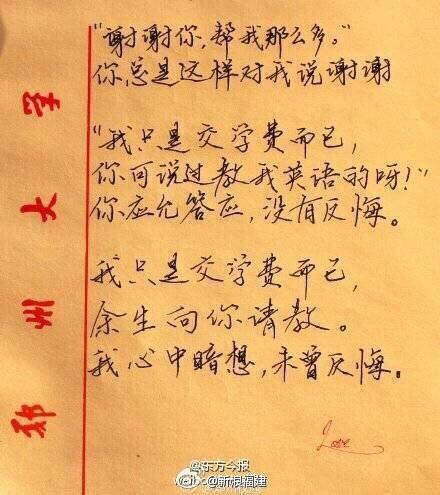 "谢谢你,帮我那么多。"
你总是这样对我说谢谢
"我只是交学费而已,
你可说过教我英语的呀!"
你应允答应,没有反悔。
我只是交学费而已,
余生向你请教。
我心中暗想,未曾反悔。
Love
郑州大学
@东方今报
weibo@新浪福建